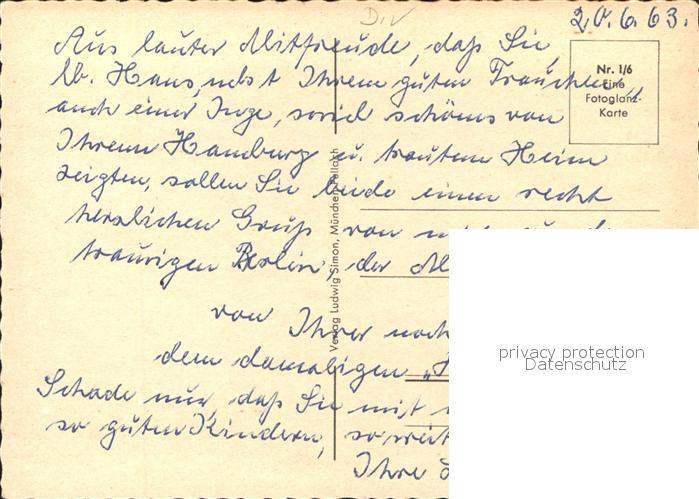 D.V
20.6.63.
Aus lauter Mitfreude, daß Sie,
lb. Hans, nebst Ihrem guten Frauchen
auch einer Inge, soviel schönes von
Ihrem Hamburg u. trautem Heim
zeigten, sollen Sie beide einen recht
herzlichen Gruß von
traurigen Berlin, der
von Ihrer noch
dem damaligen
Schade nur, daß Sie mit
so guten Kindern, so weit
Ihre
Nr. 1/6
Eine
Fotoglanz-
Karte
Verlag Ludwig Simon, München-Pullach
privacy protection
Datenschutz